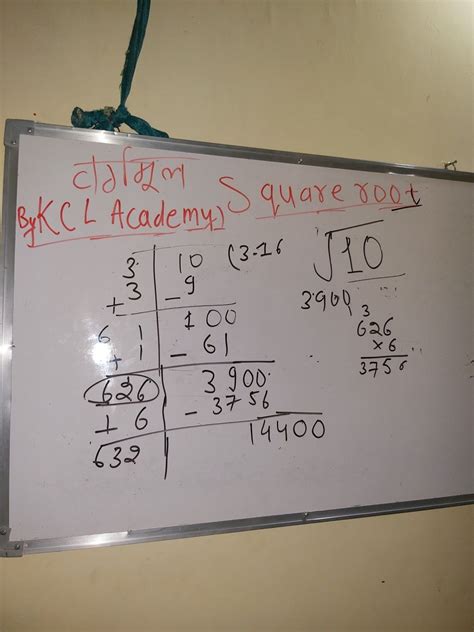 वर्गमूल Square root
By KCL Academy)
3 10 (3.16 √10
+ 3 - 9
3900( 3
61 100 626
+ 1 - 61 ×6
626 3900 3756
+ 6 - 3756
632 14400